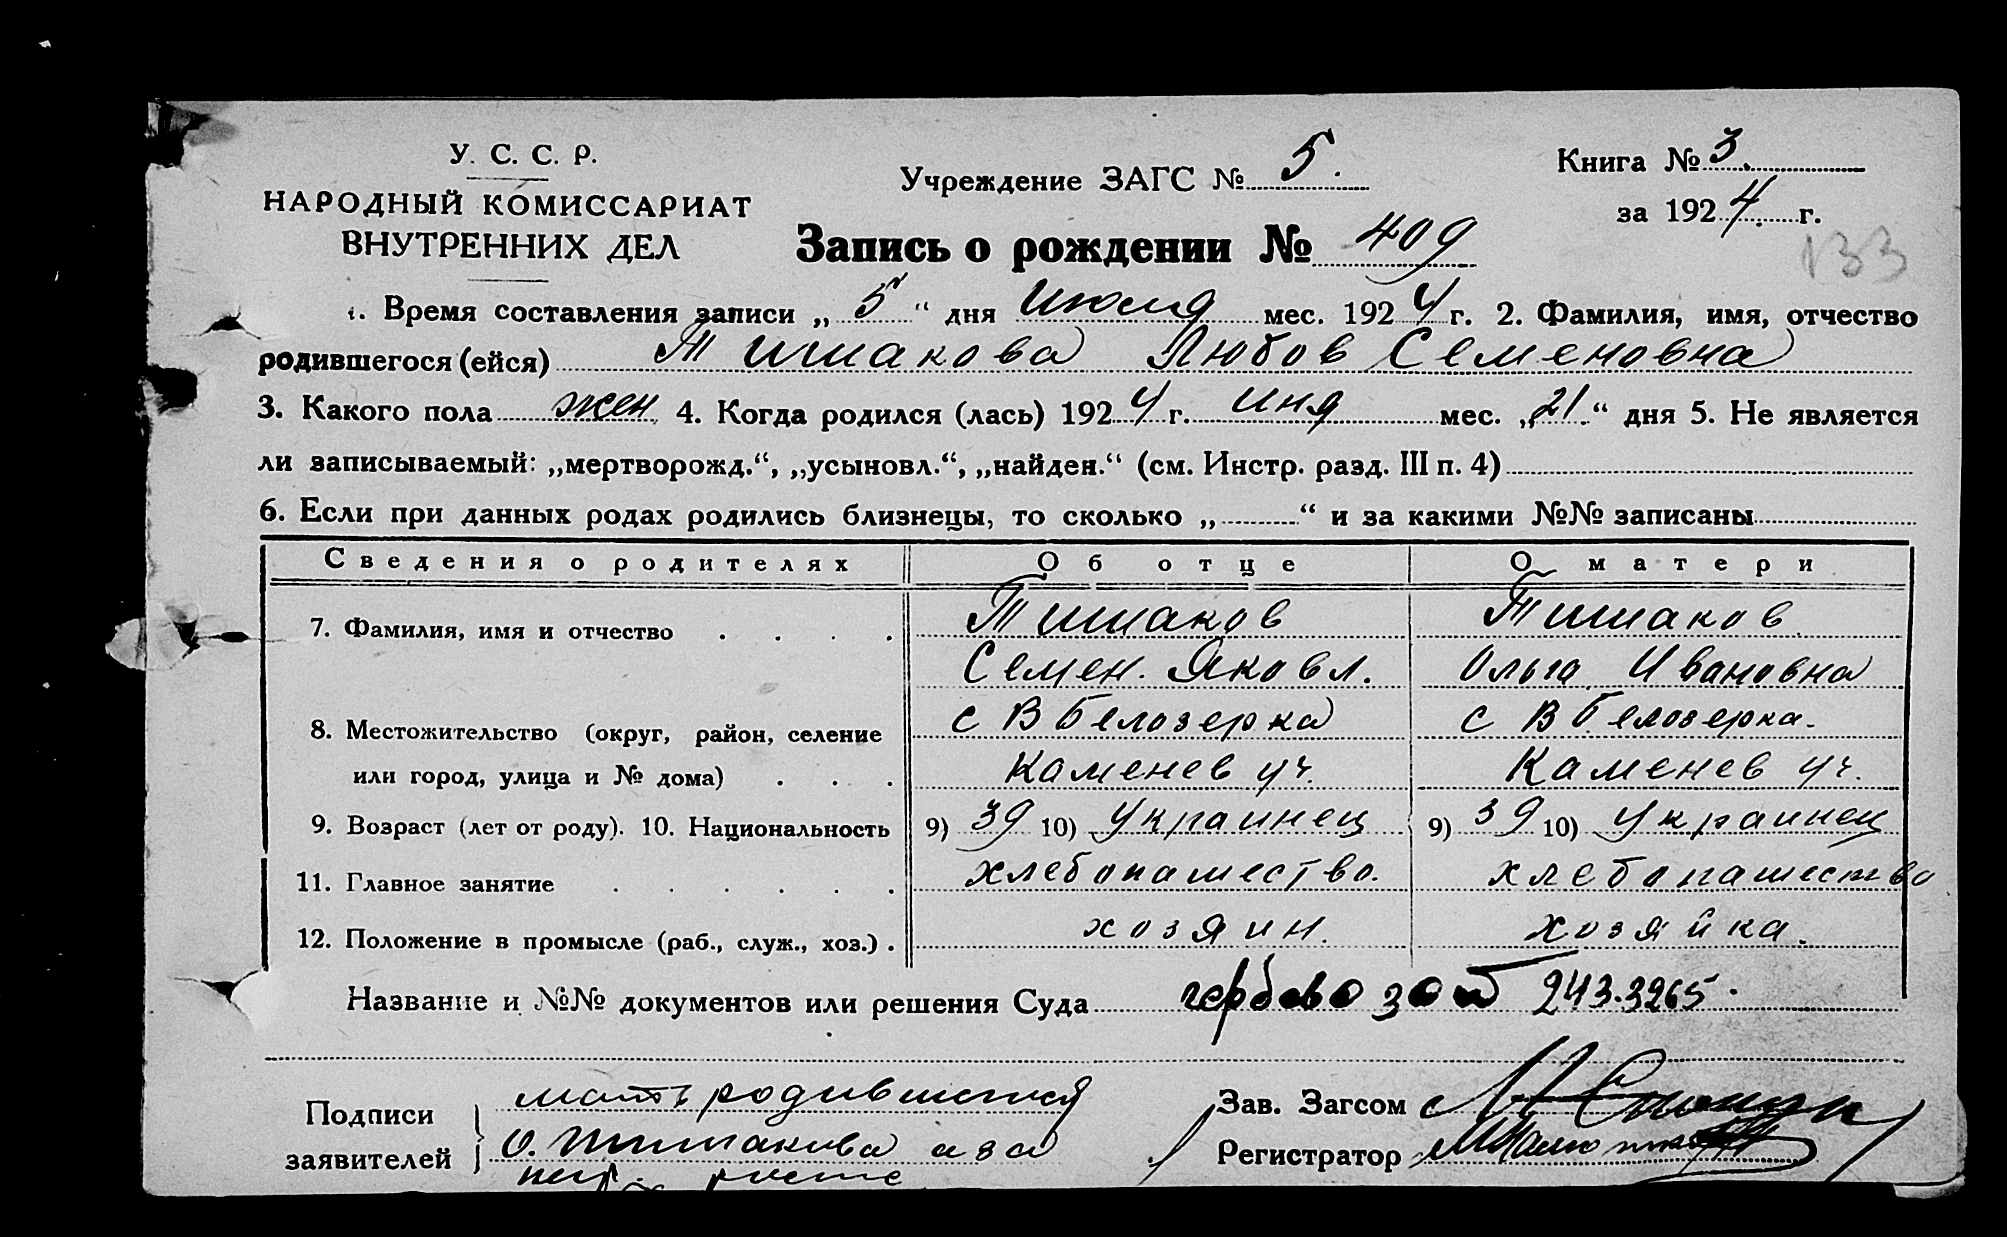 У. С. С. Р.
НАРОДНЫЙ КОМИССАРИАТ
ВНУТРЕННИХ ДЕЛ
Учреждение ЗАГС № 5.
Книга № 3.
за 1924 г.
133
Запись о рождении № 409
1. Время составления записи „5“ дня Июля мес. 1924 г. 2. Фамилия, имя, отчество
родившегося (ейся) Тишакова Любов Семеновна
3. Какого пола жен 4. Когда родился (лась) 1924 г. Иня мес. „21.“ дня 5. Не является
ли записываемый: „мертворожд.“, „усыновл.“, „найден.“ (см. Инстр. разд. III п. 4)
6. Если при данных родах родились близнецы, то сколько „ “ и за какими №№ записаны
Сведения о родителях Об отце О матери
7. Фамилия, имя и отчество Тишаков Тишаков
Семен. Яковл. Ольга Ивановна
8. Местожительство (округ, район, селение с В белозерка с В белозерка.
или город, улица и № дома) Каменев уч. Каменев уч.
9. Возраст (лет от роду). 10. Национальность 9) 39 10) Украинец 9) 39 10) Украинец
11. Главное занятие хлебопашество. хлебопашество
12. Положение в промысле (раб., служ., хоз.) хозяин. хозяйка.
Название и №№ документов или решения Суда 243.3265.
Подписи заявителей мать родившегося
О. Тишакова а за
Зав. Загсом
Регистратор